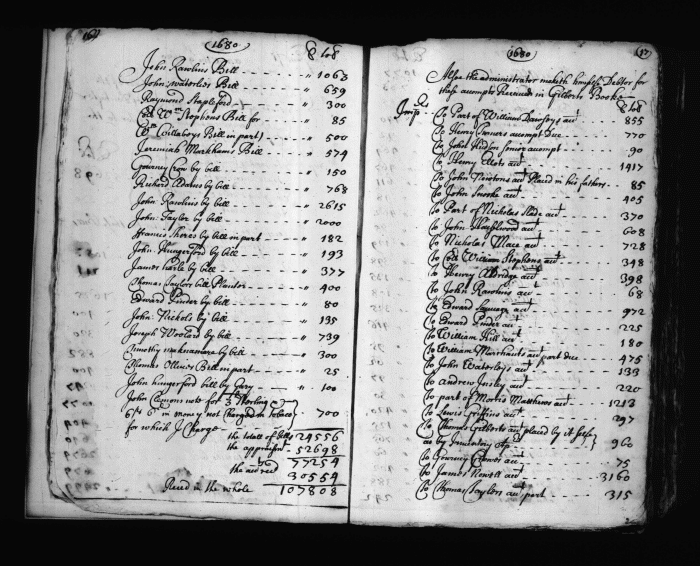 1680
John Rawlins Bill " 1063
John Waterlies Bill " 659
Raymond Stapleford " 300
Coll Wm Stephens Bill for " 85
Bill in part " 500
Jeremiah Markhams Bill " 574
Gourney Crow by bill " 150
Richard Adams by bill " 768
John Rawlins by bill " 2615
John Taylor by bill " 2000
Francis by bill in part " 182
John Hungerford by bill " 193
James by bill " 377
Thomas Taylors bill Planter " 400
Edward Pinder by bill " 80
John Nichols by bill " 135
Joseph Woolard by bill " 739
Timothy by bill " 300
Thomas Bill in part " 25
John hungerford bill by Gary " 100
John for Sterling
in money not Charged in tobaco 700
for which I Charge
the totall of bills 24556
the 52698
77254
the 30554
Recd in the whole 107808
1680
17
Also the administrator maketh himselfe Debtor for
these accompt Received in Gilberts Booke
Imps To Part of William acct 855
To Henry accompt Due 770
To John Hudson accompt 90
To Henry acct 1417
To John Newtons act Placed in his fathers 85
To John acct 405
To Part of Nicholas Slade act 370
To John act 608
To Nicholas Mace act 728
To Coll William Stephens act 348
To Henry Aldridge act 398
To John Rawlins act 68
To Edward Savage act 972
To Edward Pinder act 225
To William Hill act 180
To William Marchants act part due 475
To John Waterlys act 133
To andrew Insley act 220
To part of Morris Matthews act 1213
To Lewis Griffins act 297
To Thomas Gilberts act placed by it selfe
as by Inventory 960
To Gourney act 75
To James Newell act 3160
To Thomas Taylors act part 315